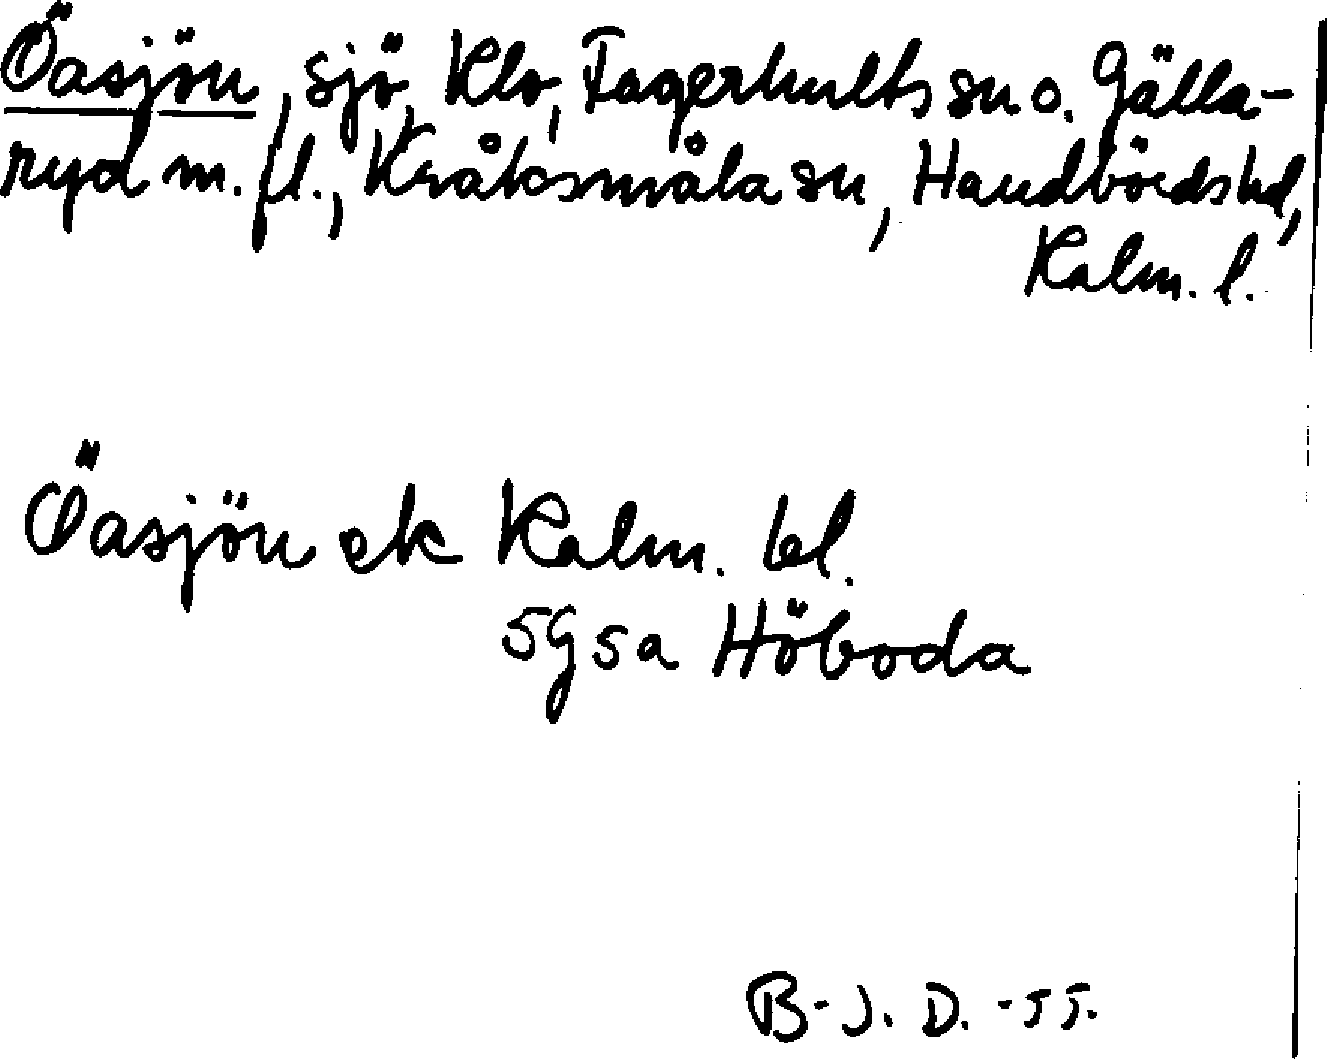 Öasjön, sjö, Klv, Fagerhults sn o. Gälla-
ryd m. fl., Kråksmåla sn, Handbörds hd,
Kalm. l.
Öasjön ek Kalm. bl.
5G5a Höboda
B-J. D. -55.